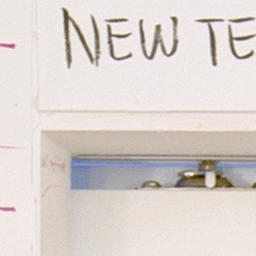 NEW TE